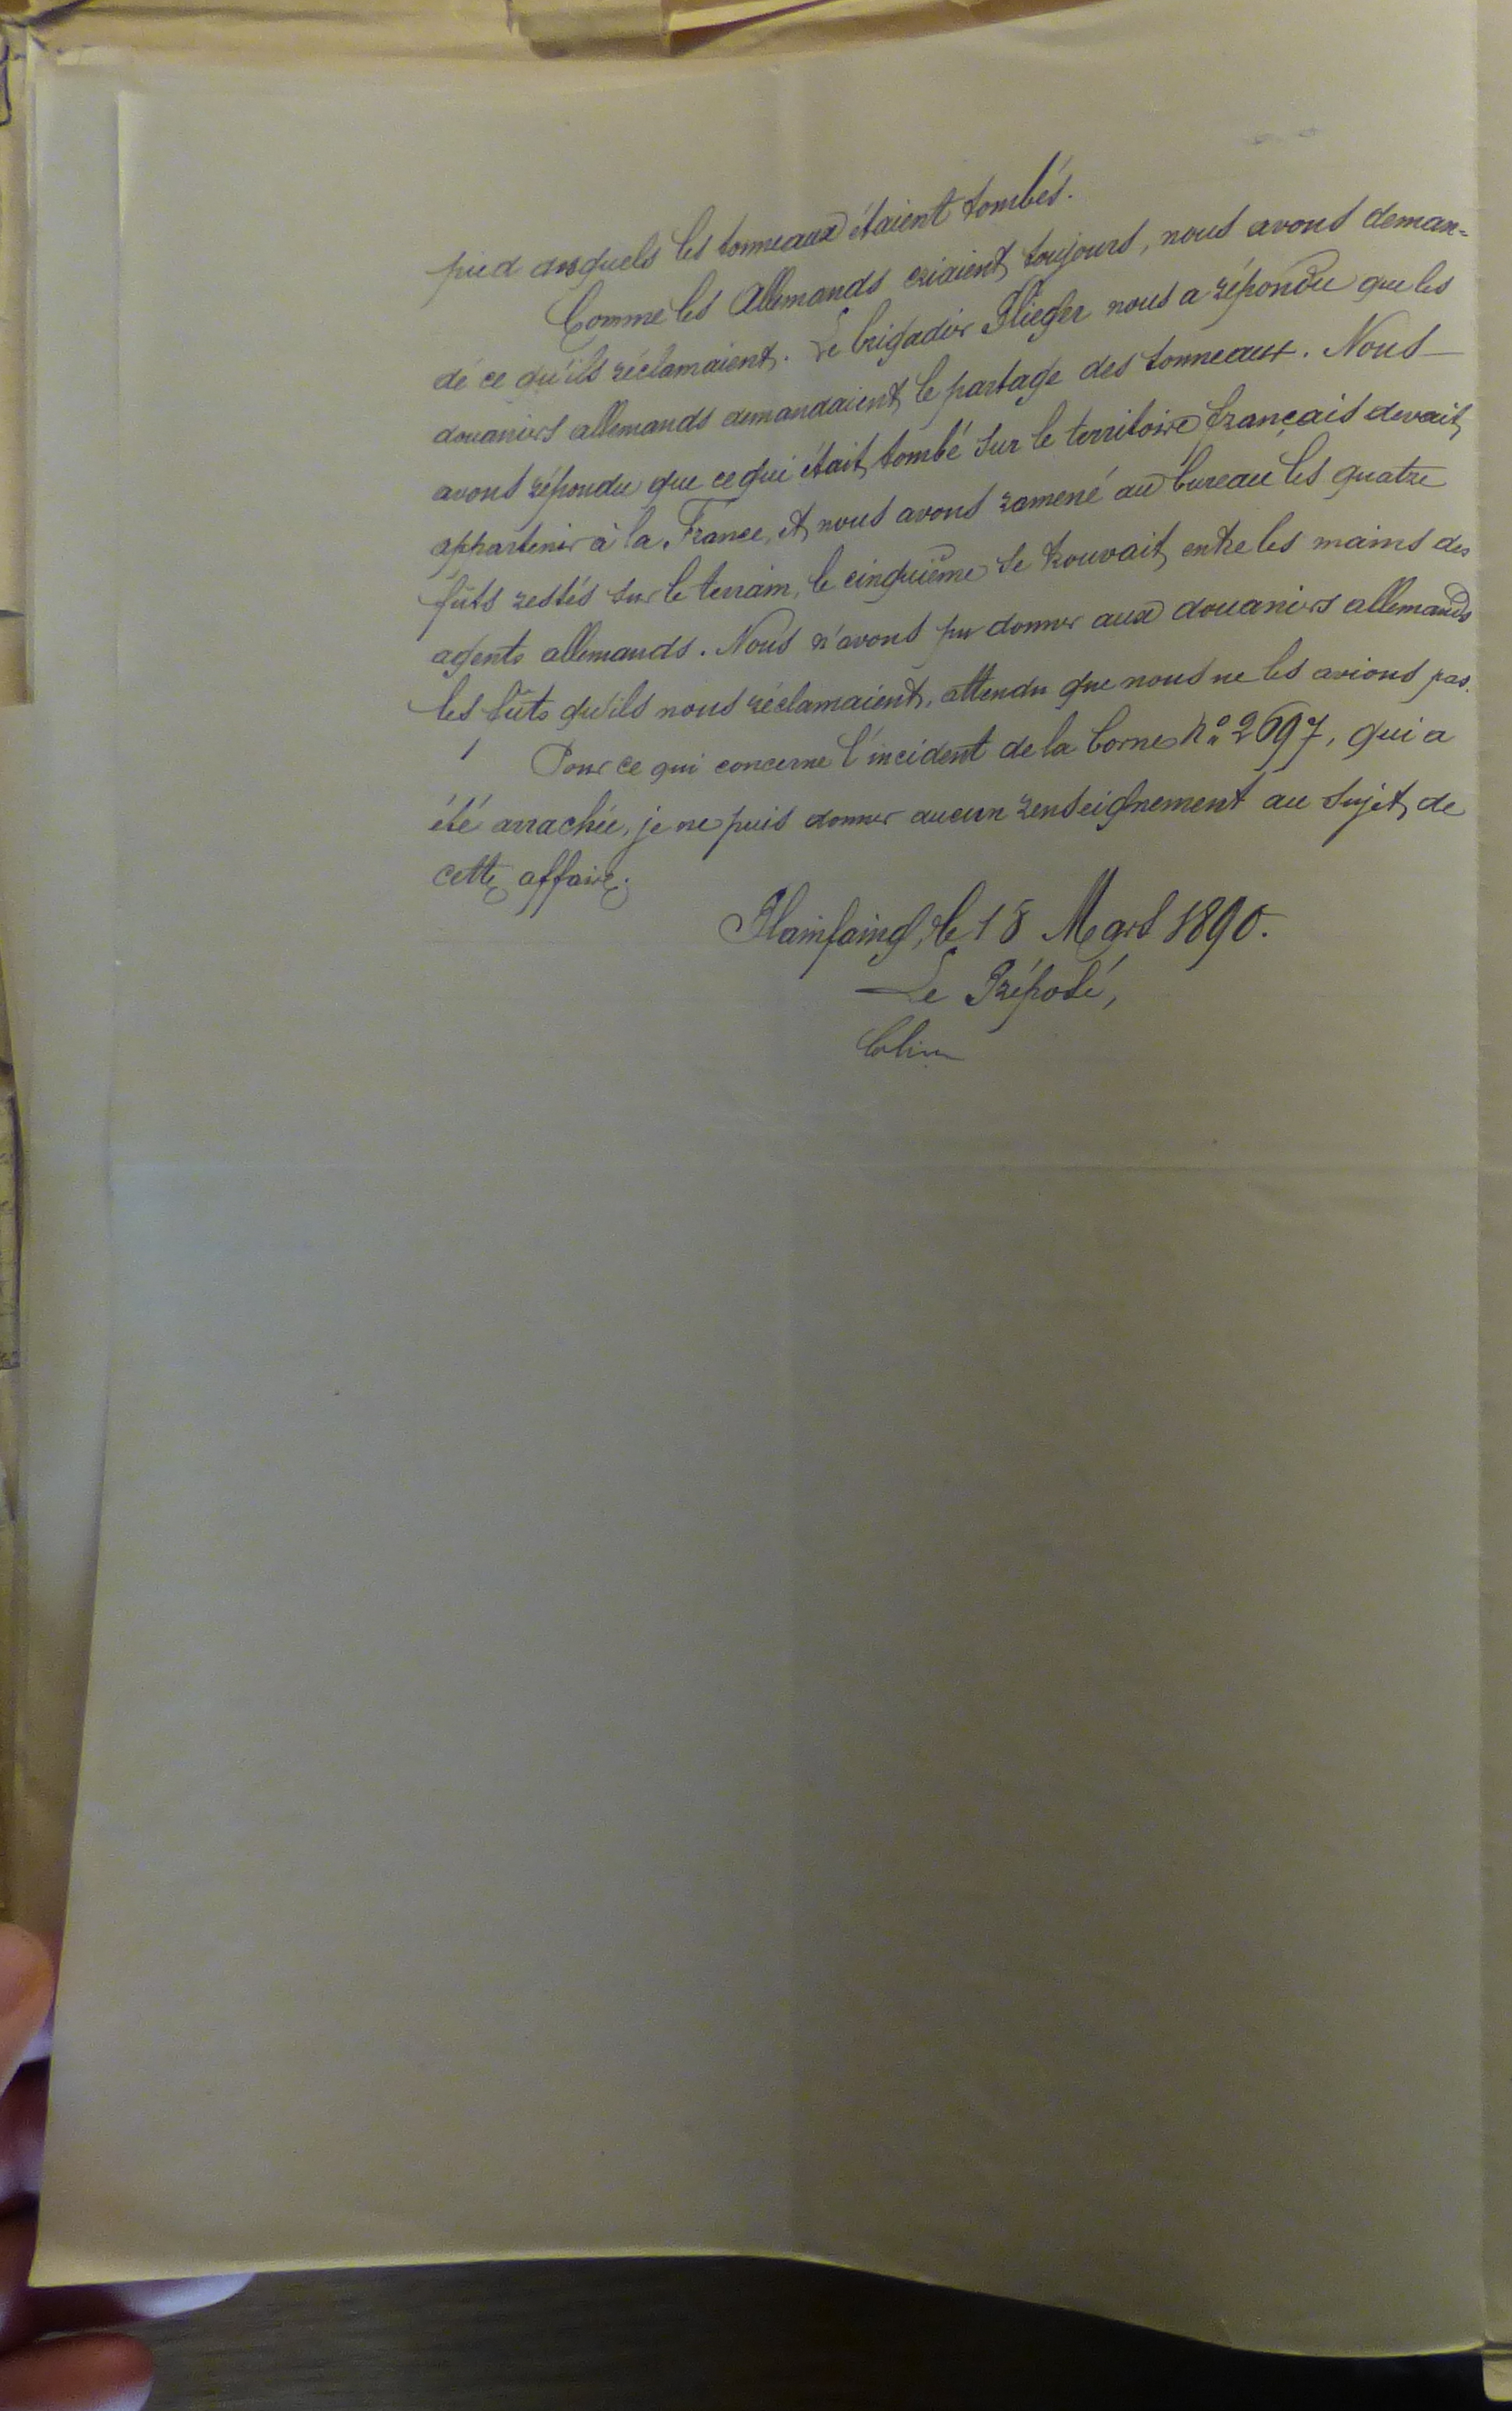 pied desquels les tonneaux étaient tombés.
Comme les Allemands criaient toujours, nous avons deman=
dé ce qu'ils réclamaient. Le brigadier Flieger nous a répondu que les
douaniers allemands demandaient le partage des tonneaux. Nous
avons répondu que ce qui était tombé sur le territoire français devait
appartenir à la France, et nous avons ramené au bureau les quatre
fûts restés sur le terrain, le cinquième se trouvait entre les mains des
agents allemands. Nous n'avons pu donner aux douaniers allemands
les fûts qu'ils nous réclamaient, attendu que nous ne les avions pas.
Pour ce qui concerne l'incident de la borne n° 2697, qui a
été arrachée, je ne puis donner aucun renseignement au sujet de
cette affaire.
Plainfaing, le 18 Mars 1890.
Le Préposé,
Colin